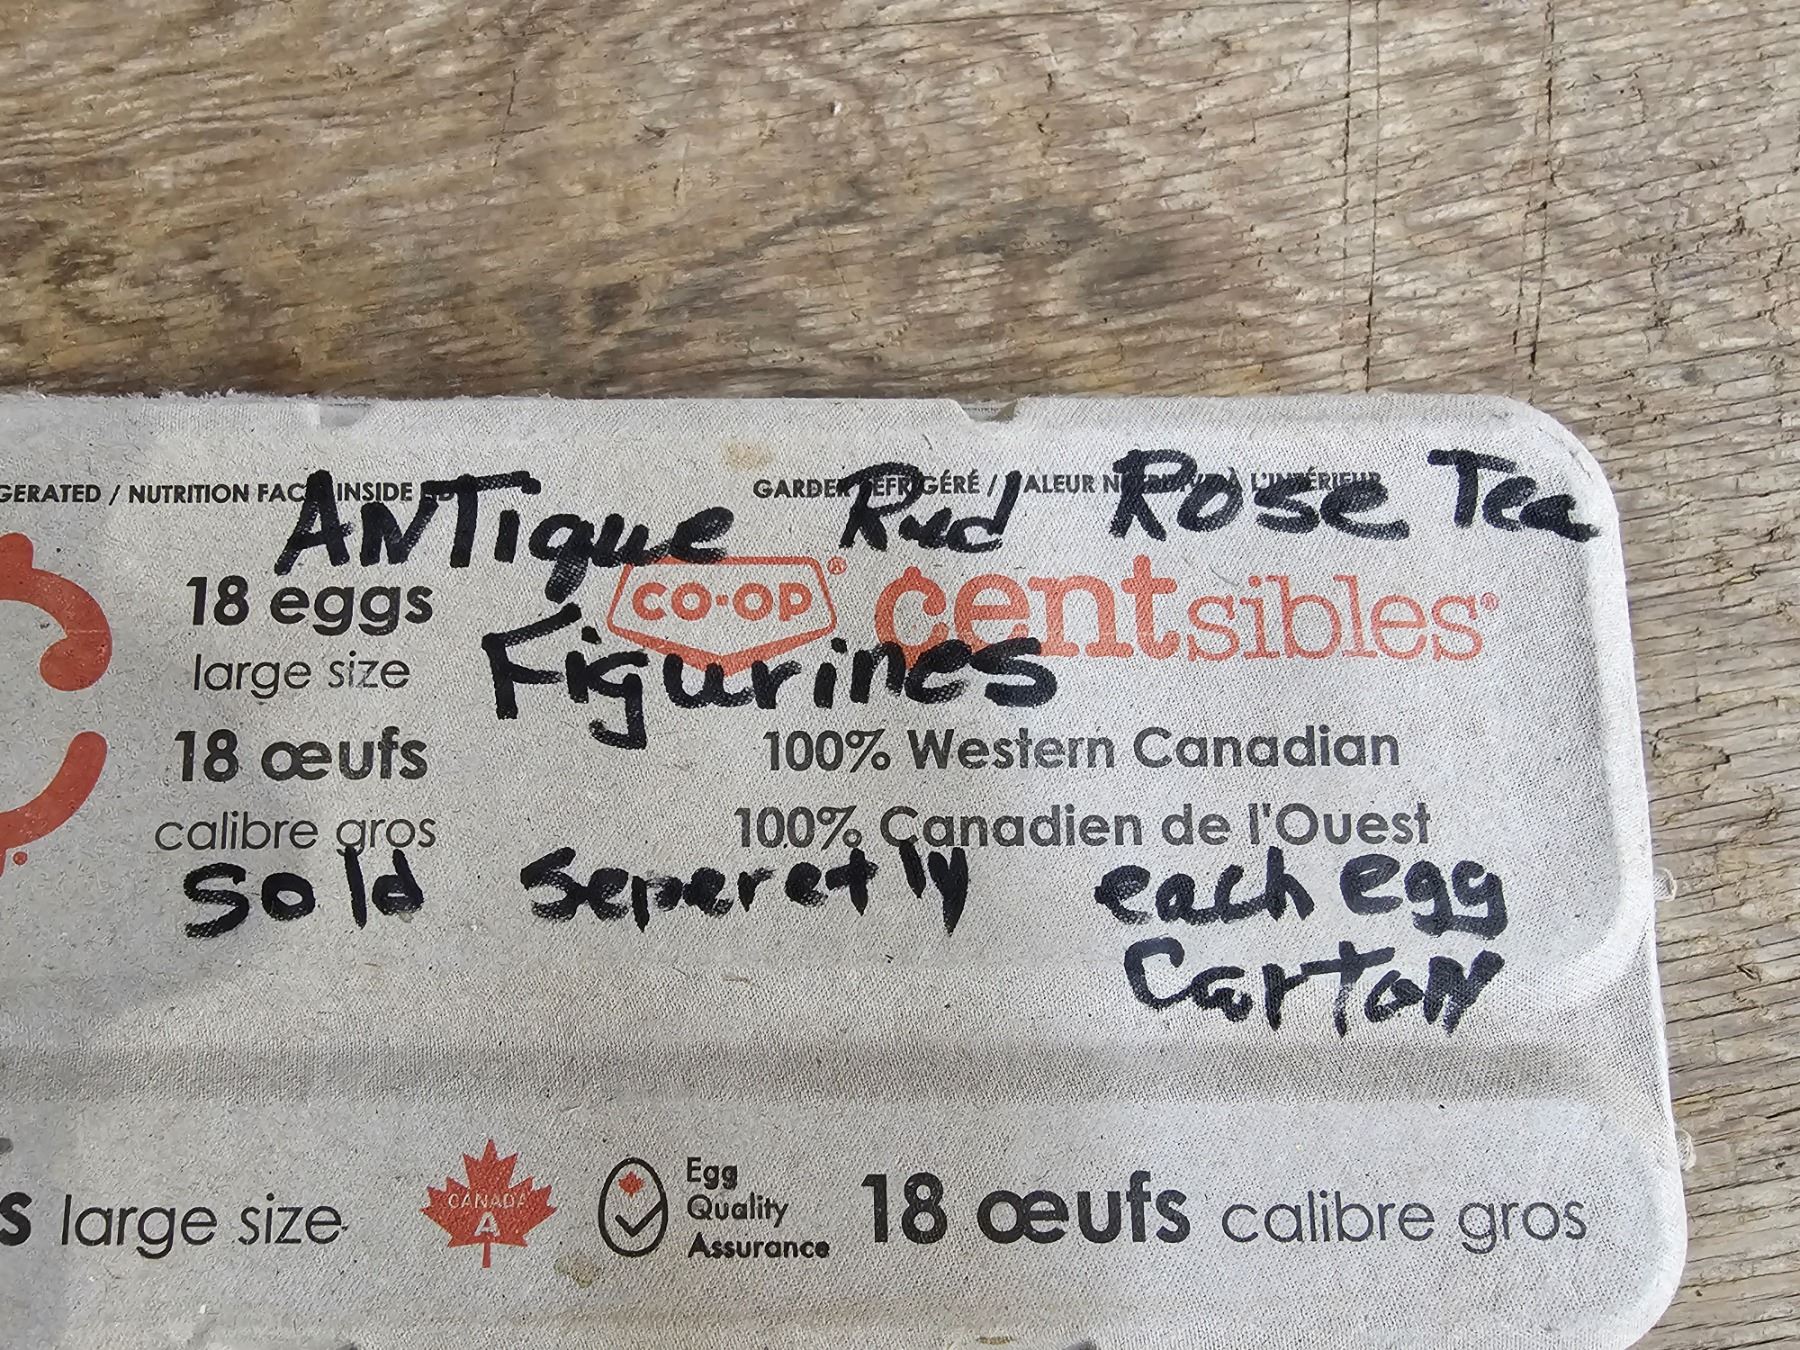 ANTique Red Rose Tea
GERATED / NUTRITION FAC INSIDE
GARDER RÉFRIGÉRÉ / VALEUR NUTRITIVE À L'INTÉRIEUR
CO-OP® centsibles®
18 eggs
large size
Figurines
18 œufs
calibre gros
100% Western Canadian
100% Canadien de l'Ouest
Sold Seperetly each egg
Carton
s large size
CANADA
A
Egg
Quality
Assurance
18 œufs calibre gros